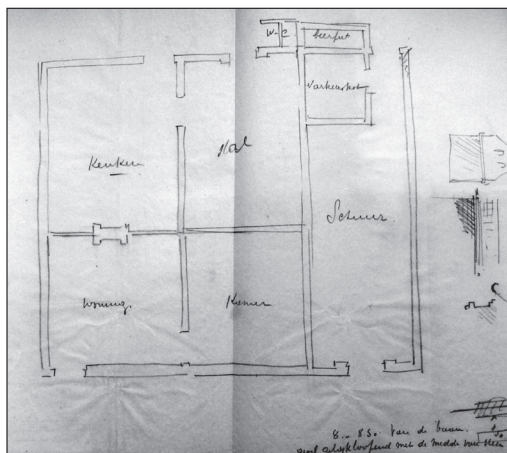 W-C
beerput
varkenskot
Keuken
Stal
Schuur
Woning.
Kamer
8m 85. van de baan.
met de midde van